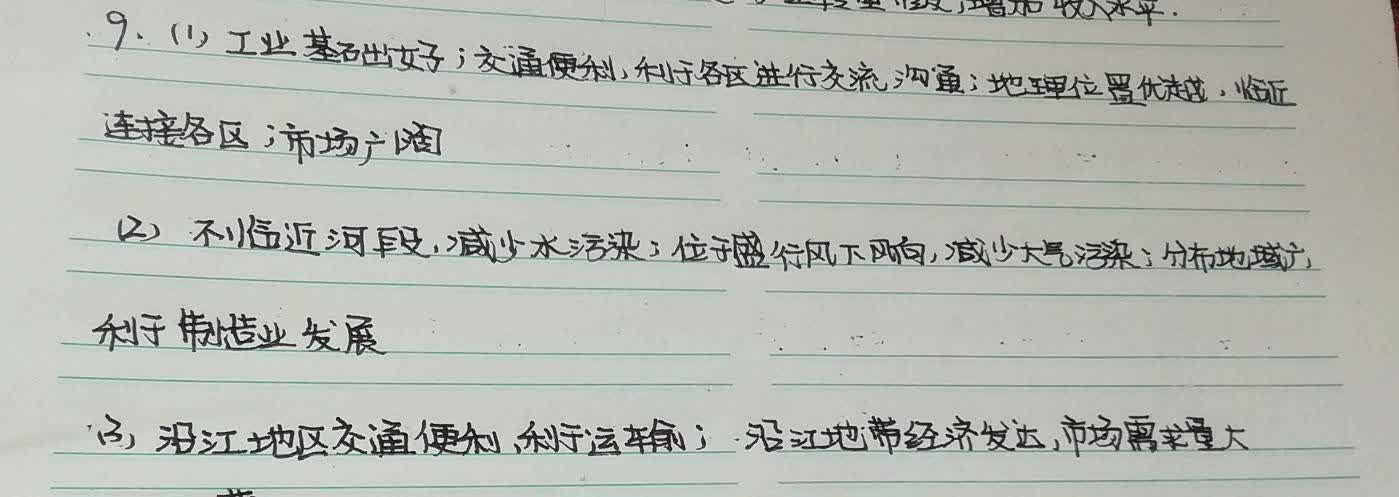 增加收入水平.
9.(1)工业基础好;交通便利,利于各区进行交流沟通;地理位置优越,临近
连接各区;市场广阔
(2)不临近河段,减少水污染;位于盛行风下风向,减少大气污染;分布地域广,
利于制造业发展
(3)沿江地区交通便利,利于运输;沿江地带经济发达,市场需求量大